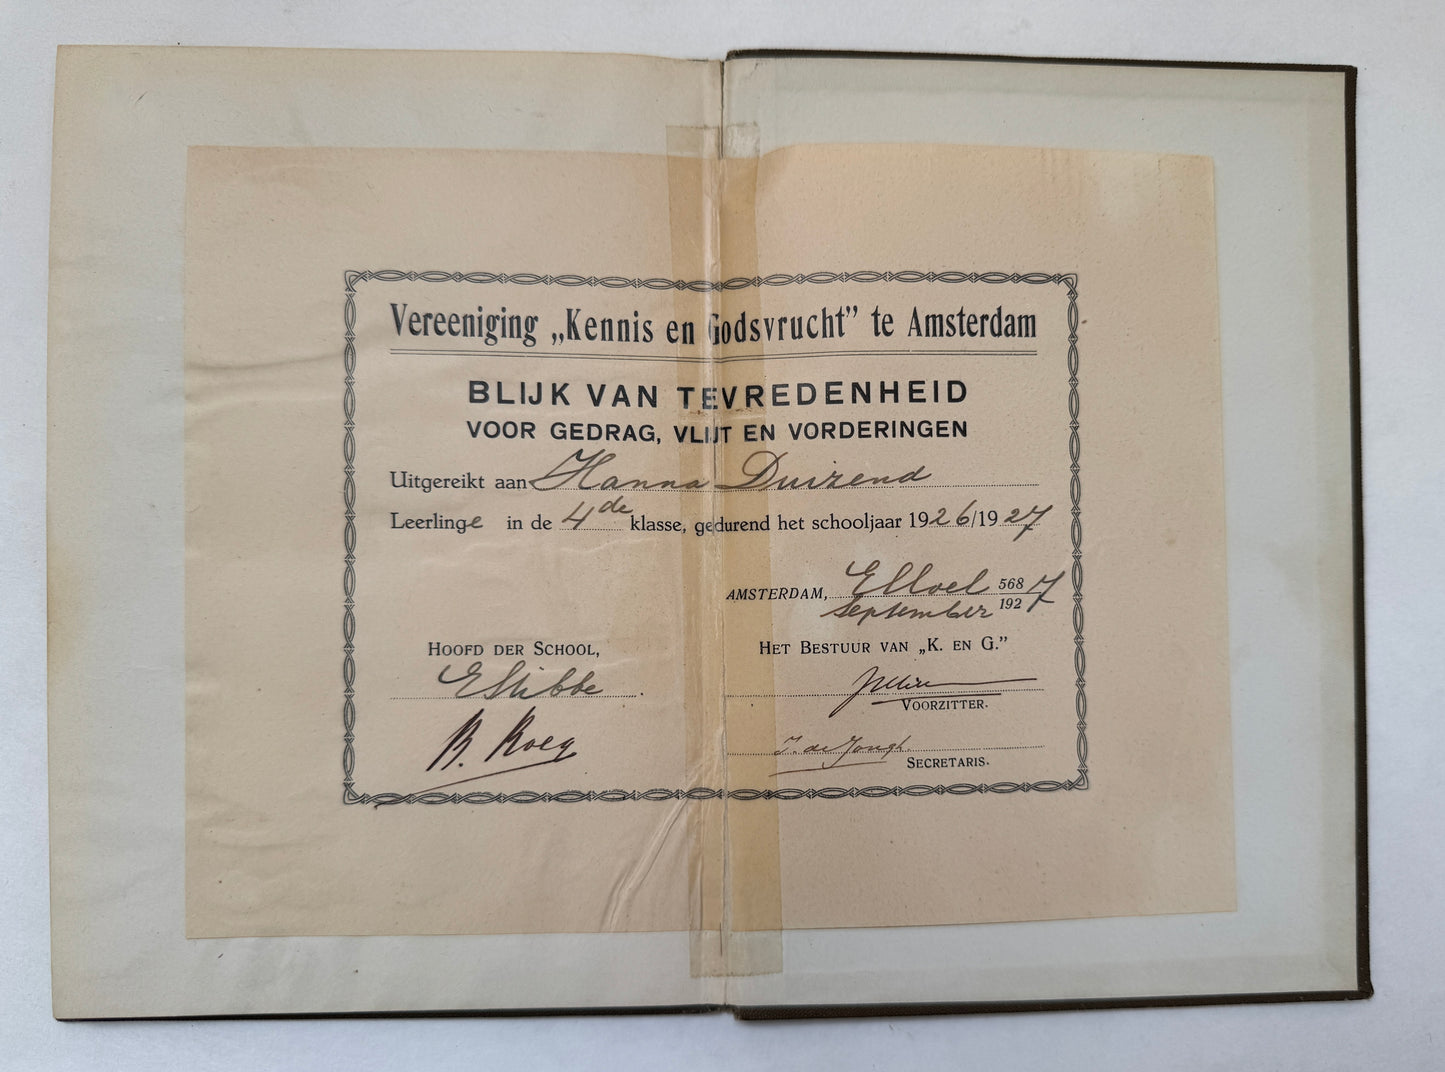 Vereeniging „Kennis en Godsvrucht” te Amsterdam
BLIJK VAN TEVREDENHEID
VOOR GEDRAG, VLIJT EN VORDERINGEN
Uitgereikt aan Hanna Duizend
Leerlinge in de 4de klasse, gedurend het schooljaar 1926/1927
AMSTERDAM, Elloel 5687
September 1927
HOOFD DER SCHOOL,
HET BESTUUR VAN „K. EN G.”
E Stibbe
VOORZITTER.
B. Koeg
I. de Jongh.
SECRETARIS.